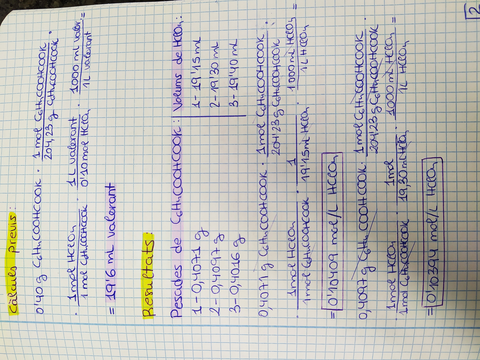 Càlculs Previs:
0'40 g C₆H₄COOHCOOK · 1mol C₆H₄COOHCOOK / 204,23 g C₆H₄COOHCOOK ·
· 1mol HClO₄ / 1 mol C₆H₄COOHCOOK · 1L valorant / 0'10 mol HClO₄ · 1000 mL valor. / 1L valorant =
= 19'6 mL valorant
Resultats:
Pesades de C₆H₄COOHCOOK: Volums de HClO₄:
1 - 0,4071 g 1 - 19'15 mL
2 - 0,4097 g 2 - 19'30 mL
3 - 0,4016 g 3 - 19'40 mL
0,4071 g C₆H₄COOHCOOK · 1mol C₆H₄COOHCOOK / 204'23 g C₆H₄COOHCOOK ·
· 1mol HClO₄ / 1mol C₆H₄COOHCOOK · 1 / 19'15 mL HClO₄ · 1000 mL HClO₄ / 1L HClO₄ =
= 0'10409 mol/L HClO₄
0,4097 g C₆H₄COOHCOOK · 1mol C₆H₄COOHCOOK / 204,23 g C₆H₄COOHCOOK ·
· 1mol HClO₄ / 1mol C₆H₄COOHCOOK · 1mol / 19,30 mL HClO₄ · 1000 mL HClO₄ / 1L HClO₄ =
= 0'10394 mol/L HClO₄
2